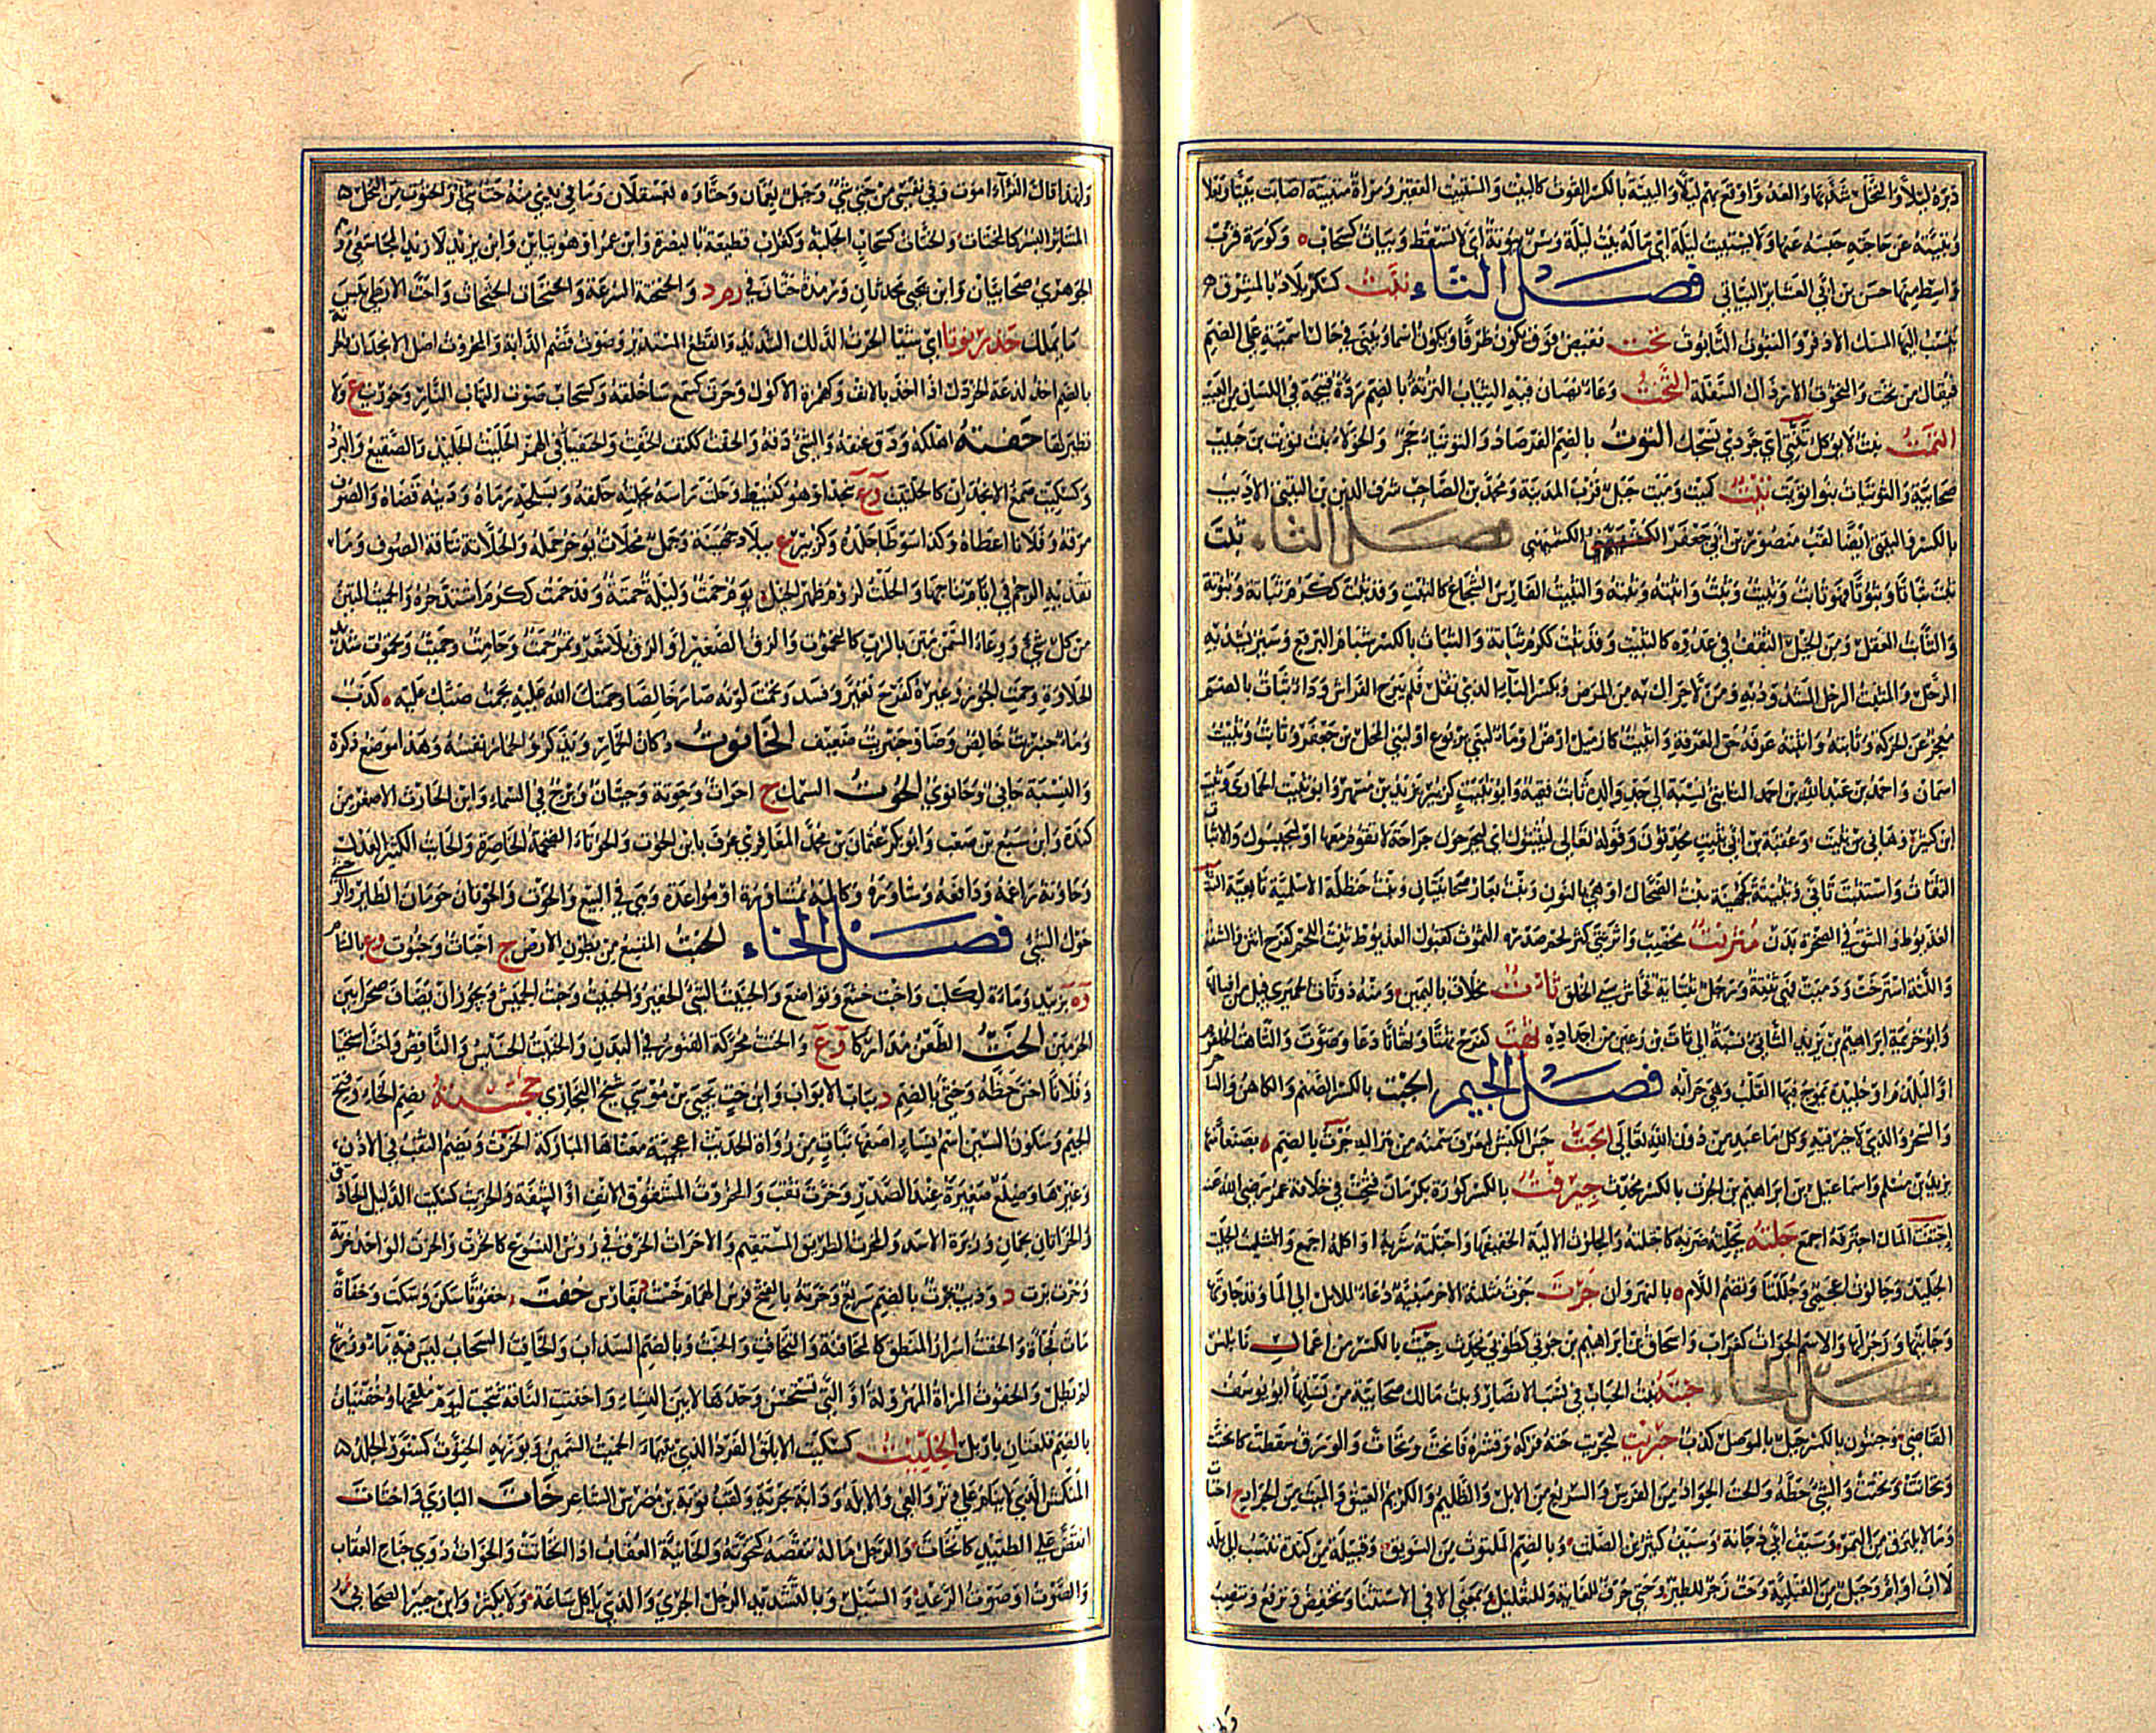 دبره ليلا والنخل شذبها والعدو اوقع بهم ليلا والبيتة بالكسر القوت كالبيت والمستبيت الفقير وامرأة متبيتة اصابت بيتا وبعلا
وتبيته عن حاجته حبسه عنها ولا يستبيت ليلة اي ماله بيت ليلة وسن بيوتة اي لا تسقط وبيات كسحاب وكورة قرب
واسط منها حسن بن ابي العشائر البياتي فصل التاء تبت كسكر بلاد بالمشرق
ينسب اليها المسك الاذفر والتبوت التابوت تحت نقيض فوق يكون ظرفا ويكون اسما ويبنى في حال اسميته على الضم
فيقال من تحت والتحوت الارذال السفلة التخت وعاء تصان فيه الثياب
التمت نبت لا يؤكل التوت بالضم الفرصاد والتوتياء حجر والحولاء بنت تويت بن حبيب
صحابية والتويتات بنو تويت تيت كميت وميت جبل قرب المدينة ومحمد بن الصاحب شرف الدين بن التيتي الاديب
بالكسر والتيتي ايضا لقب منصور بن ابي جعفر الكشميهني فصل الثاء ثبت
ثباتا وثبوتا فهو ثابت وثبيت وثبت واثبته وثبته والثبيت الفارس الشجاع كالثبت وقد ثبت ككرم ثباتة وثبوتة
والثابت العقل ومن الخيل الثقف في عدوه كالثبت والثبات بالكسر شبام البرقع وسير يشد به
الرحل والمثبت الرحل المشدود به ومن لا حراك به من المرض وبكسر الباء الذي ثقل فلم يبرح الفراش وداء ثبات بالضم
معجز عن الحركة وثابته واثبته عرفه حق المعرفة واثبيت كازميل ارض او ماء لبني يربوع او لبني المحل بن جعفر وثابت وثبيت
اسمان واحمد بن عبد الله بن احمد الثابتي نسبة الى جد والده ثابت فقيه
ابن كثير وهانئ بن ثبيت وعقبة بن ابي ثبيت محدثون وقوله تعالى ليثبتوك اي ليجرحوك جراحة لا تقوم معها او ليحبسوك والاثبات
الثقات واستثبت تأنى وثبيتة كجهينة بنت الضحاك او هي بالنون وبنت يعار صحابيتان وبنت حنظلة الاسلمية تابعية
العذيوط والشق في الصخرة بدن مثرنت مخصب واثرنتى كثر لحم صدره الثموت كقبول العذيوط ثنت اللحم كفرح انتن والشفة
واللثة استرخت ودميت فهي ثنتة ورجل ثنتاية فحاش سيئ الخلق ثات مخلاف باليمن ومنه ذو ثات الحميري قيل من اقيالها
وابو خزيمة ابراهيم بن يزيد الثاتي نسبة الى ثات بن رعين من اجداده ثهت كفرح ثهتا وثهاتا دعا وصوت والثاهت الحلقوم
او البلدم او جليدة يموج فيها القلب وهي جرابه فصل الجيم الجبت بالكسر الصنم والكاهن والساحر
والسحر والذي لا خير فيه وكل ما عبد من دون الله تعالى الجت جس الكبش ليعرف سمنه من هزاله جوت بالضم بصنعاء منها
يزيد بن مسلم واسماعيل بن ابراهيم بن الجرت بالكسر محدث جيرفت بالكسر كورة بكرمان فتحت في خلافة عمر رضي الله عنه
اجتفت المال اجترفه اجمع جلته يجلته ضربه كاجتلته والجلوت الالية الخفيفة واجتلته شربه او اكله اجمع والجليت الجليد
وجالوت اعجمي وبالنهروان جوت جوت مثلثة الاخر مبنية دعاء للابل الى الماء وقد جاوتها
وجايتها او زجر لها والاسم الجوات كغراب واسحاق بن ابراهيم بن جوتي كطوبي محدث جيت بالكسر من اعمال نابلس
فصل الحاء حبتة بنت الحباب في نسب الانصار وبنت مالك صحابية من نسلها ابو يوسف
القاضي وحبتون بالكسر جبل بالموصل كذب حبريت حته فركه وقشره فانحت وتحات والورق سقطت كانحتت
وتحاتت وتحتحتت والشيء حطه والحت الجواد من الفرس والسريع من الابل والظليم والكريم العتيق والميت من الجراد ج احتات
وما لا يلتزق من التمر وسيف ابي دجانة وسيف كثير بن الصلت وبالضم الملتوت من السويق وقبيلة من كندة تنسب الى بلد
لا اب او ام وجبل من القبلية وحت زجر للطير وحتى حرف للغاية وللتعليل وبمعنى الا في الاستثناء وتخفض وترفع وتنصب
ولهذا قال الفراء اموت وفي نفسي من حتى شيء وجبل بعمان وحتاوة بعسقلان وما في يدي منه حتات شيء والحتوت من النخل
المتناثر البسر كالمحتات والحتات كسحاب الجلبة وكغراب قطيعة بالبصرة وابن عمرو او هو بياءين وابن يزيد لا زيد المجاشعي وهم
الجوهري صحابيان وابن يحيى محدث والحتحتة السرعة والحتحات الحثحاث واحت الارطى يبس
ما يملك حذربوتا اي شيئا الحرت الدلك الشديد والقطع المستدير وصوت قضم الدابة والمحروت اصل الانجذان
بالضم اخذ لذعة الخردل اذا اخذ بالانف وكهمزة الاكول وحرت كسمع ساء خلقه وكسحاب صوت التهاب النار وحوريت ع ولا
نظير لها حفته اهلكه ودق عنقه والشيء دقه والحفت ككتف الحفث والحفيتأ في الهمز الحليت الجليد والصقيع والبرد
وكسكيت صمغ الانجذان كالحلتيت ع بنجد او هو كقبيط وحلت رأسه حلقه وبسلحه رماه ودينه قضاه والصوف
مزقه وفلانا اعطاه وكذا سوطا جلده وكزبير ع ببلاد جهينة وجمل محلات يؤخر حمله والحلاتة نتافة الصوف وما
تقذفه الرحم في ايام نتاجها والحلت لزوم ظهر الخيل يوم حمت وليلة حمتة وقد حمت ككرم اشتد حره والحميت المتين
من كل شيء ووعاء السمن متن بالرب كالتحموت والزق الصغير او الزق بلا شعر وتمر حمت وحامت وحميت وتحموت شديد
الحلاوة وحمت الجوز وغيره كفرح تغير وفسد وتحمت لونه صار خالصا وحمتك الله عليه يحمتك صبك عليه كذب
وماء حنبريت خالص وضاو حنبريت ضعيف الحانوت دكان الخمار ويذكر والخمار نفسه وهذا موضع ذكره
والنسبة حاني وحانوي الحوت السمك ج احوات وحوتة وحيتان وبرج في السماء وابن الحارث الاصغر من
كندة وابن سبع بن صعب وابو بكر عثمان بن محمد المعافري عرف بابن الحوت والحوتاء الضخمة الخاصرة والحائت الكثير العذل
وحاوته راغمه ودافعه وشاوره وكالمه بمشاورة او مواعدة وهي في البيع والحوت والحوتان حومان الطائر والوحشي
حول الشيء فصل الخاء الخبت المتسع من بطون الارض ج اخبات وخبوت وع بالشام
وة بزبيد وماءة لكلب واخبت خشع وتواضع والخبيت الشيء الحقير والخبيث وخبت الجميش وخبت البزواء صحراء بين
الحرمين الخت الطعن مداركا وع والختت محركة الفتور في البدن والختيت الخسيس والناقص واخت استحيا
وفلانا اخس حظه وختي بالضم د بباب الابواب وابن خت يحيى بن موسى شيخ البخاري خجستة بضم الخاء وفتح
الجيم وسكون السين اسم نساء اصبهانيات من رواة الحديث اعجمية معناها المباركة الخرت ويضم الثقب في الاذن
وغيرها وضلع صغيرة عند الصدر وخرت ثقب والمخروت المشقوق الانف او الشفة والخريت كسكيت الدليل الحاذق
والخراتان نجمان وزبرة الاسد والمخرت الطريق المستقيم والاخرات الحلق في رؤس النسوع كالخرت والخرت الواحد خرتة
وخرت برت د وذئب خرت بالضم سريع وخرتة بالفتح فرس الهمام خست بفارس خفت خفوتا سكن وسكت وخفاتا
مات فجأة والخفت اسرار المنطق كالمخافتة والتخافت والخفت وبالضم السذاب والخافت السحاب ليس فيه ماء وزرع
لم يطل والخفوت المرأة المهزولة او التي تستحسن وحدها لا بين النساء واخفتت الناقة نتجت ليوم ملقحها وخفتيان
بالضم قلعتان باربل الخليت كسكيت الابلق الفرد الذي بتيماء الخميت السمين وبوزنه الخنوت كسنور الجلد
المنكمش الذي لا ينام على وتر والعيي والابله ودابة بحرية ولقب توبة بن مضرس الشاعر خات البازي واختات
انقض على الصيد كانخات والرجل ماله تنقصه كتخوته والخائتة العقاب اذا انخاتت والخوات دوي جناح العقاب
والصوت او صوت الرعد والسيل وبالتشديد الرجل الجريء والذي يأكل كل ساعة ولا يكثر وابن جبير الصحابي